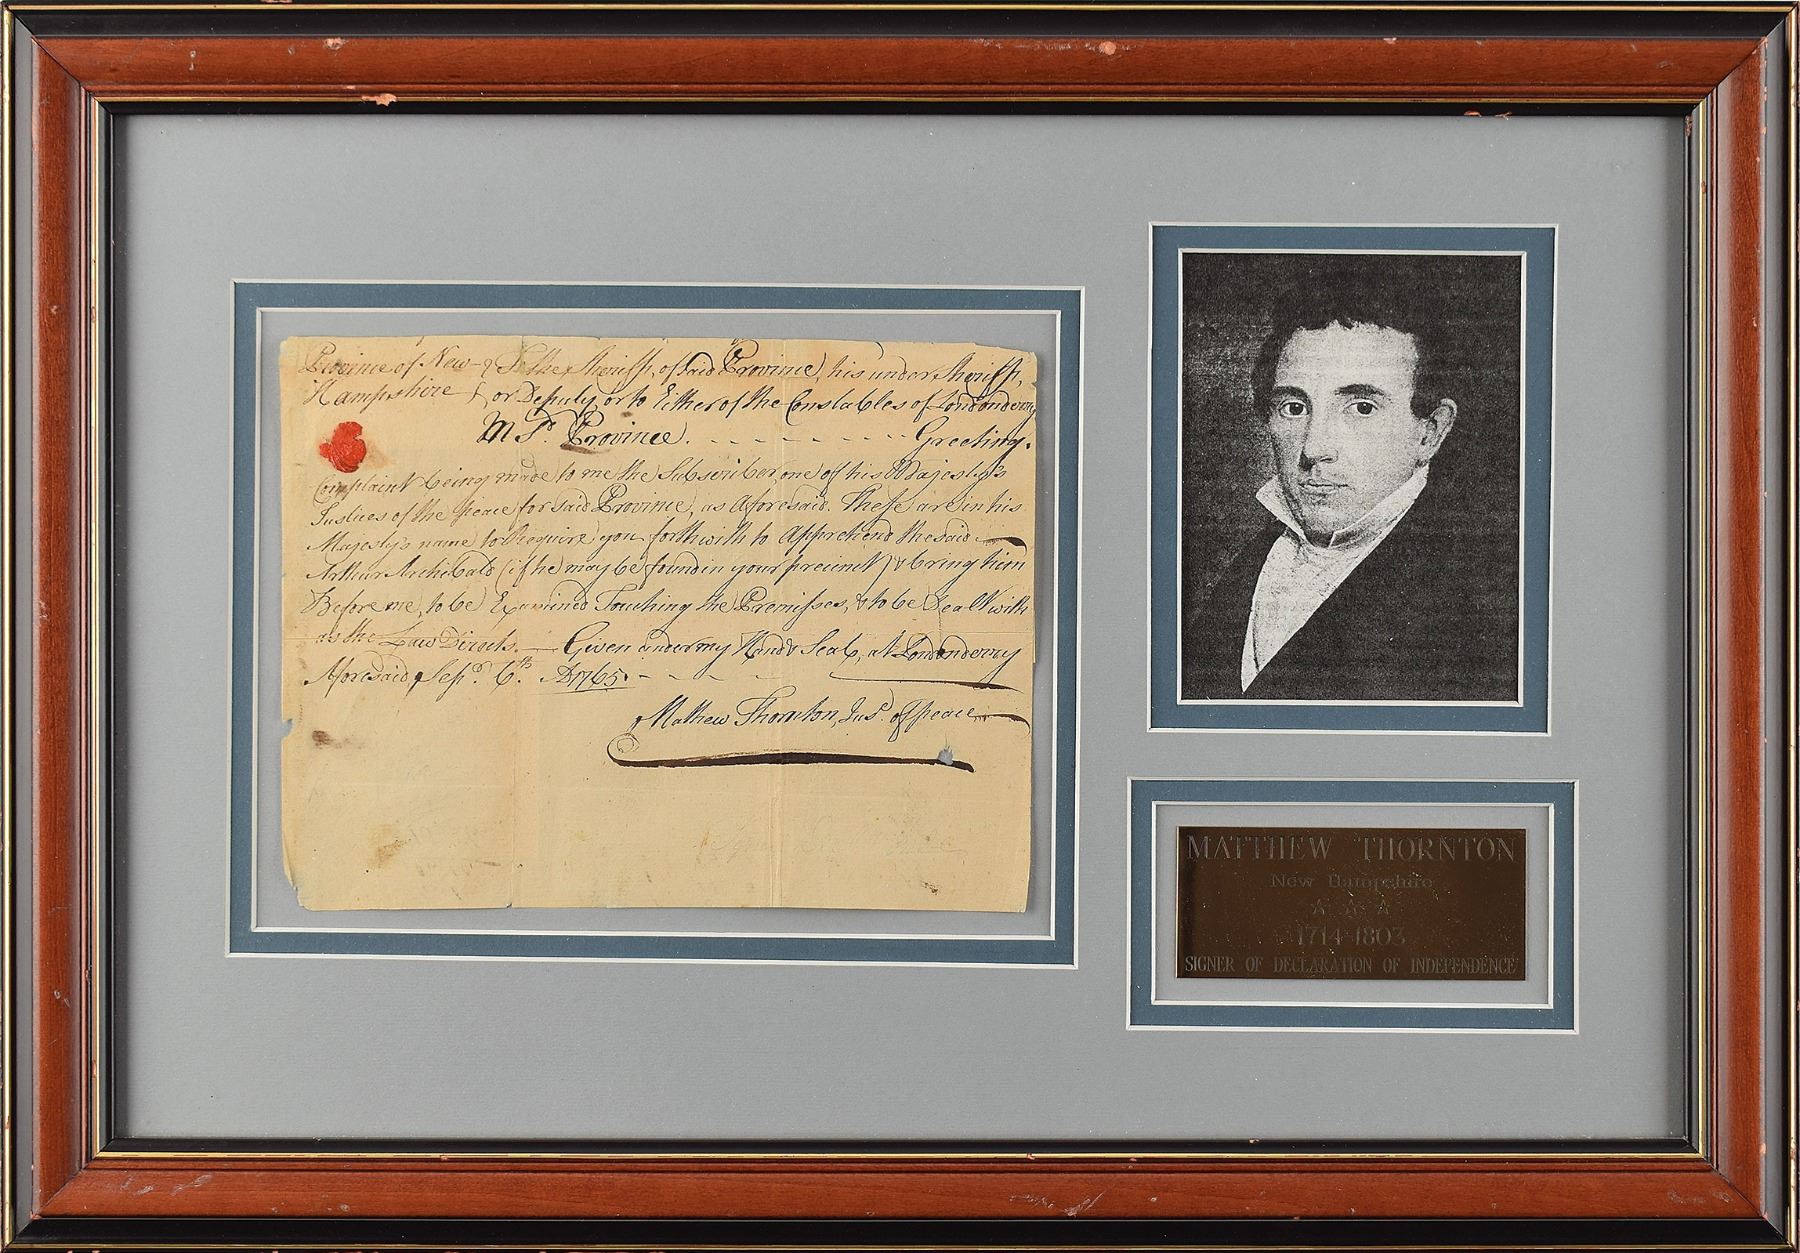 Province of New- } To the Sheriff, of said Province, his under Sheriff,
Hampshire } or Deputy or to Either of the Constables of Londonderry
in Sd. Province. - - - - - - - - Greeting.
Complaint being made to me the Subscriber, one of his Majesty's
Justices of the peace for said Province, as Aforesaid. These are in his
Majesty's name to Require you forthwith to Apprehend the said
Arthur Archibald (if he may be found in your precinct) & bring him
Before me, to be Examined Touching the Premisses, & to be Dealt with
as the Law Directs. — Given under my Hand & Seal, at Londonderry
Aforesaid, Sepr. 6th. AD 1765. - - - -
Mathew Thornton, Jus. of peace
MATTHEW THORNTON
New Hampshire
1714-1803
SIGNER OF DECLARATION OF INDEPENDENCE